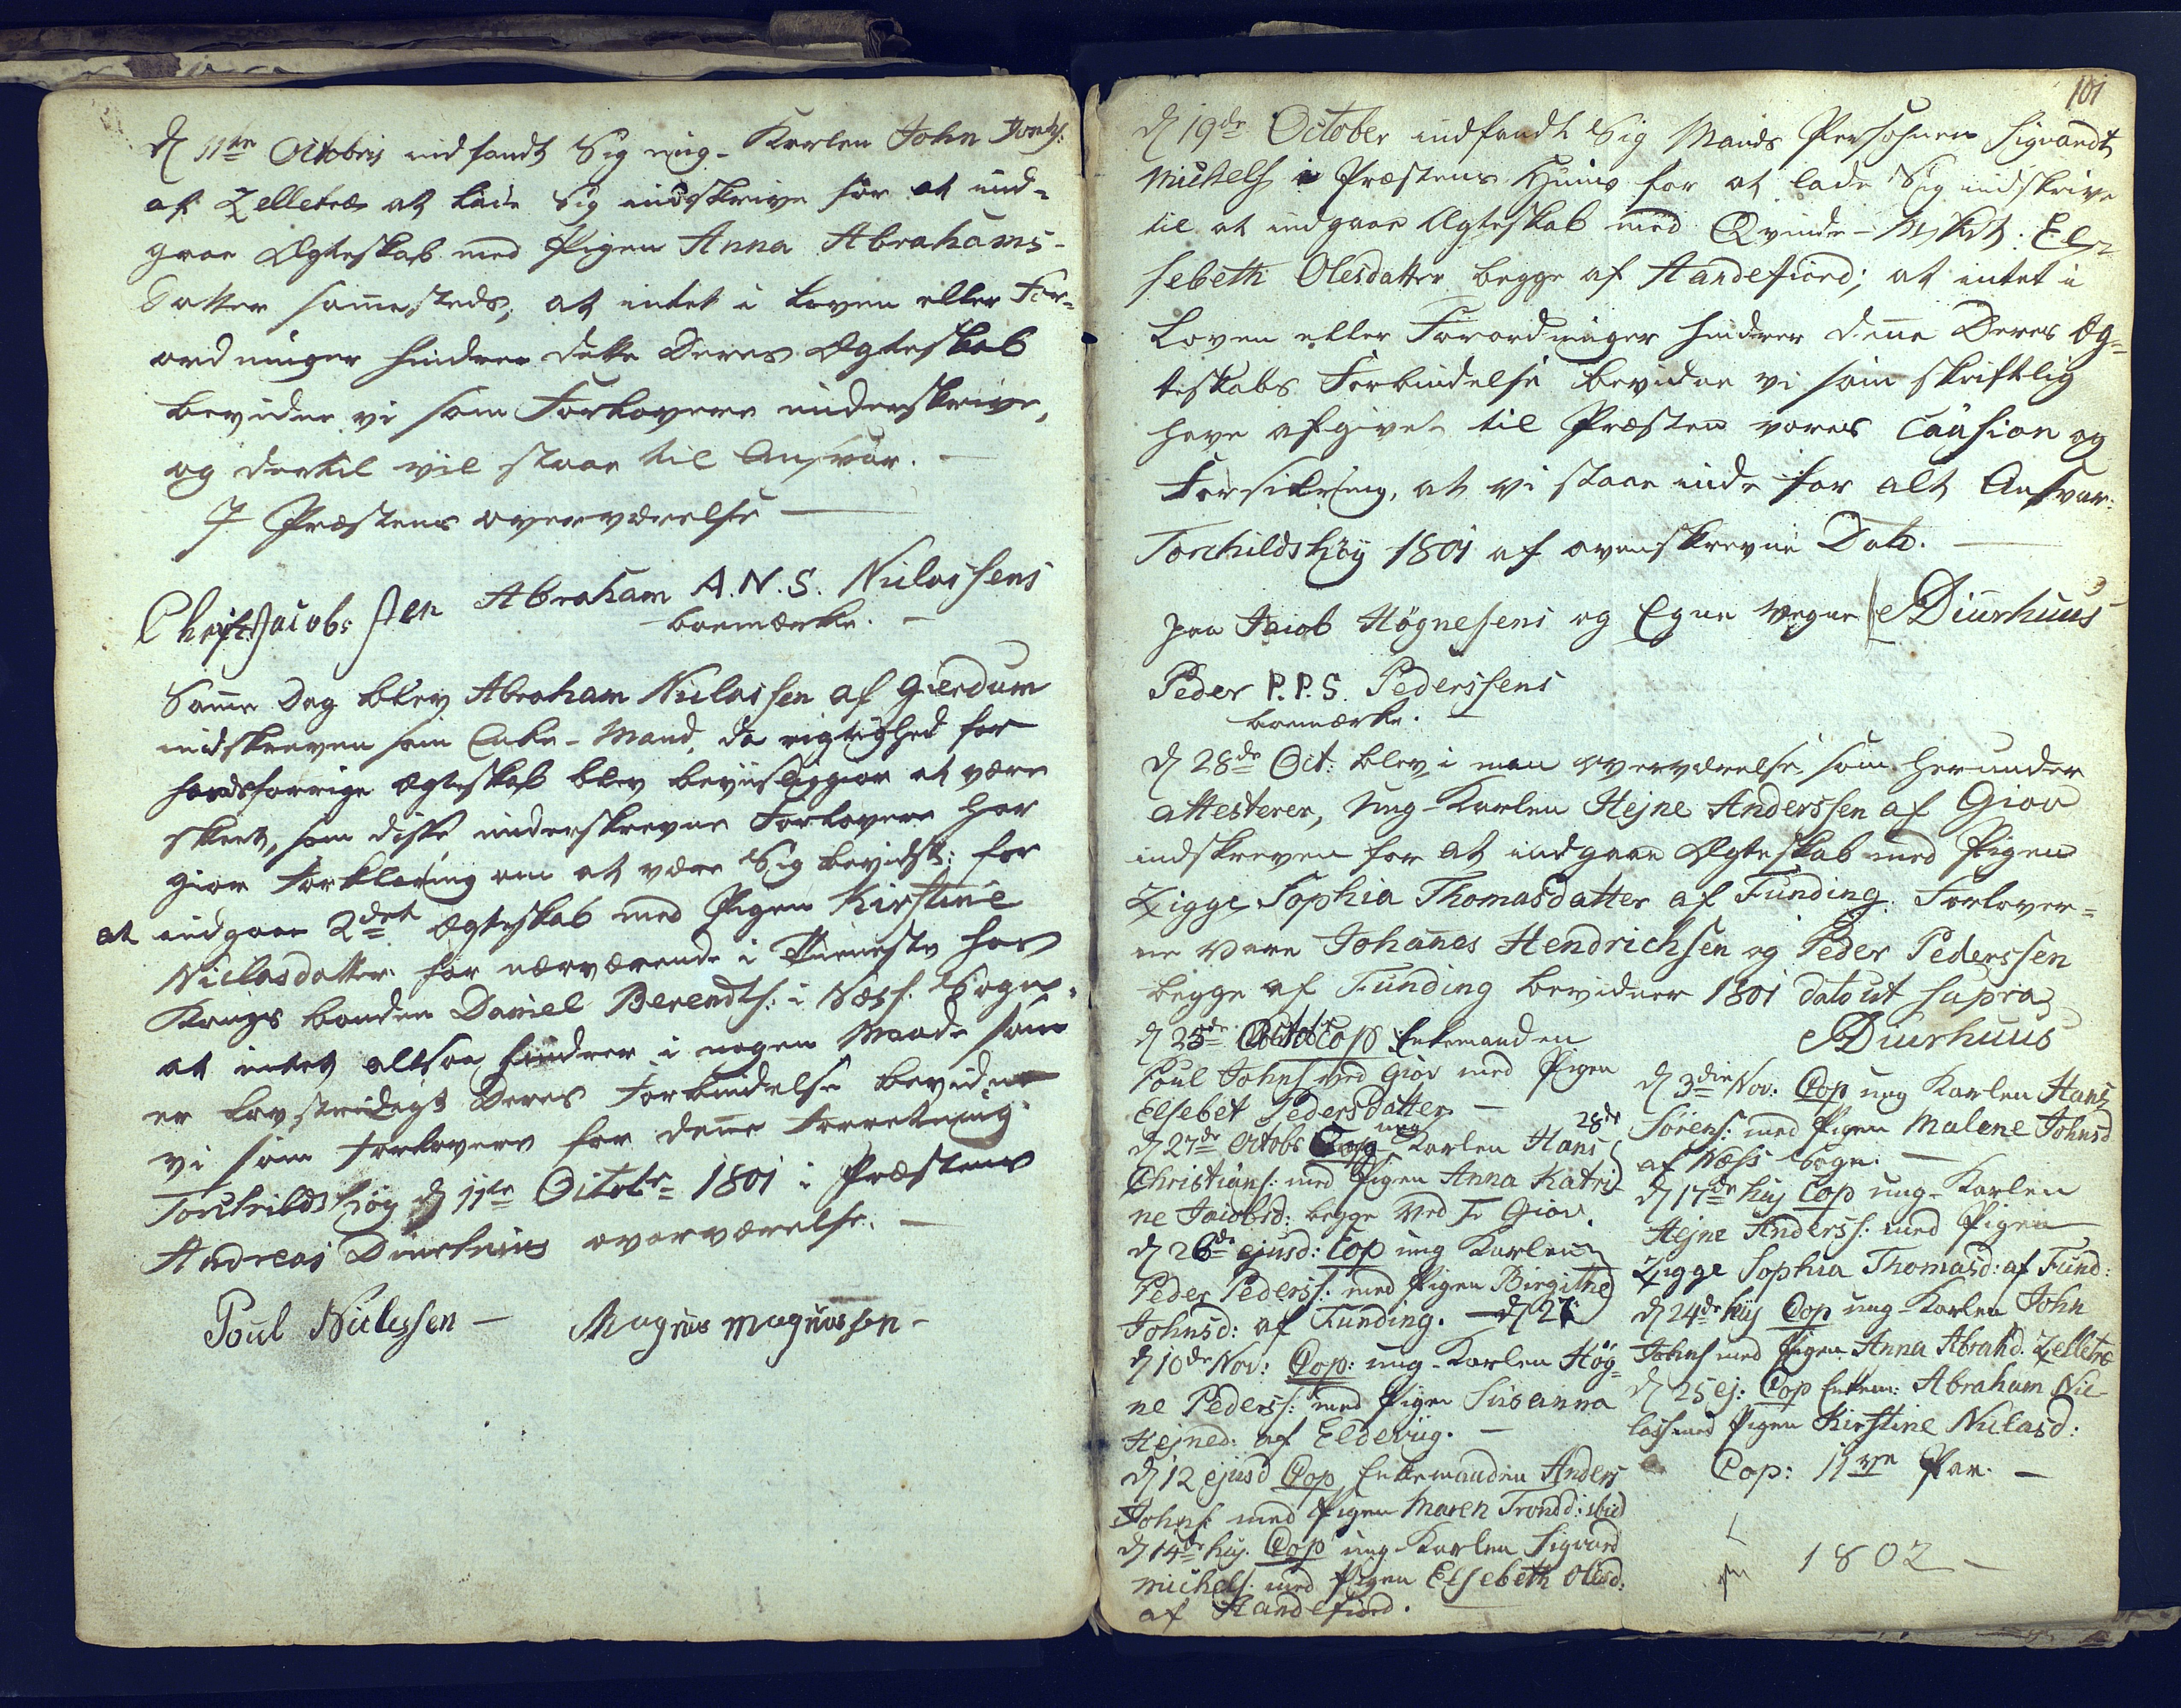 d 11te Octobris indfandt Sig ung-Karlen John Joens:
af Zelletræ at lade Sig indskrive for at ind-
gaae Ægteskab med Pigen Anna Abrahams-
Datter sam̄esteds, at intet i Loven eller For-
ordninger hindrer dette Deres Ægteskab
bevidne vi som Forlovere underskrive,
og dertil vil staae til Ansvar. —
I Præstens overværelse —
Christ: Jacobs sen Abraham A.N.S. Niclassens
boemærke. —
Sam̄e Dag blev Abraham Niclassen af Giærdum
indskreven som Enke-Mand, da rigtighed for
hands forrige Ægteskab blev beviisliggior at være
skeet, som disse underskrevne Forlovere har
gior Forklaring om at være Sig bevidst: for
at indgaae 2det Ægteskab med Pigen Kirstine
Niclasdatter for nærværende i Tieneste hos
Kongs bonden Daniel Berendts: i Næss: Sogn,
at intet altsaa hindrer i nogen Maade som
er Lovstridigt Deres Forbindelse bevidne
vi som Forlovere for den̄e Forretning.
Torchildshöy d 11te Octobr= 1801 i Præstens
Andreas Diurhuus overværelse. —
Poul Niclassen — Magnus Magnussen —
101
d 19de October indfandt Sig Mands Persohnen Sigvandt
Michels i Præstens Huus for at lade Sig indskrive
til at indgaae Ægteskab med Qvinde- Elſ=
sebeth Olesdatter begge af Handefiord; at intet i
Loven eller Forordninger hindrer den̄e Deres Æg=
teskabs Forbindelse bevidne vi som skriftlig
have afgivet til Præsten vores Caution og
Forsikring, at vi staae inde for alt Ansvar.
Torchildshöy 1801 af ovenskrevne Dato. —
paa Jacob Högnesens og Egne vegne ADiurhuus
Peder P.P.S. Pederssens
boemærke.
d 28de Oct: blev i man overværelse, som herunder
attesterer, Ung-Karlen Hejne Anderssen af Giov
indskreven for at indgaae Ægteskab med Pigen
Zigge Sophia Thomasdatter af Funding. Forlover=
ne vare Johan̄es Hendrichsen og Peder Pederssen
begge af Funding bevidner 1801 dato ut supra
ADiurhuus
d 25de Octob Cop Enkemanden
Poul Johns ved Giov med Pigen
Elsebet Pedersdatter. —
d 27de Octobr Cop ung Karlen Hans 28de
Christians: med Pigen Anna Katri-
ne Jacobsd: begge ved Giov.
d 26de ejusd: Cop ung Karlen
Peder Peders: med Pigen Birgithe
Johnsd: af Funding. — d 27
d 10de Nov: Cop: ung-Karlen Hög=
ne Peders: med Pigen Susanna
Hejned: af Eldevüg. —
d 12 ejusd Cop Enkemanden Anders
Johns: med Pigen Maren Trondd: ibid
d 14de huj. Cop ung-Karlen Sigvard
Michels: med Pigen Elsebeth Olesd:
af Handefiord.
d 3die Nov: Cop ung Karlen Hans
Sörens: med Pigen Malene Johnsd
af Næss Sogn. —
d 17de huj Cop ung-Karlen
Hejne Anderss: med Pigen
Zigge Sophia Thomasd: af Fund:
d 24de huj Cop ung-Karlen John
Johns med Pigen Anna Abrahd. Zelletræ
d 25 ej: Cop Enkem: Abraham Nic-
lass med Pigen Kirstine Niclasd:
Cop: 11ve Par. —
1802 —